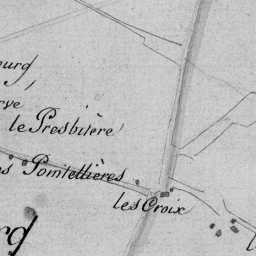 ourg
rve
le Presbitère
es Pointellières
les Croix
rg